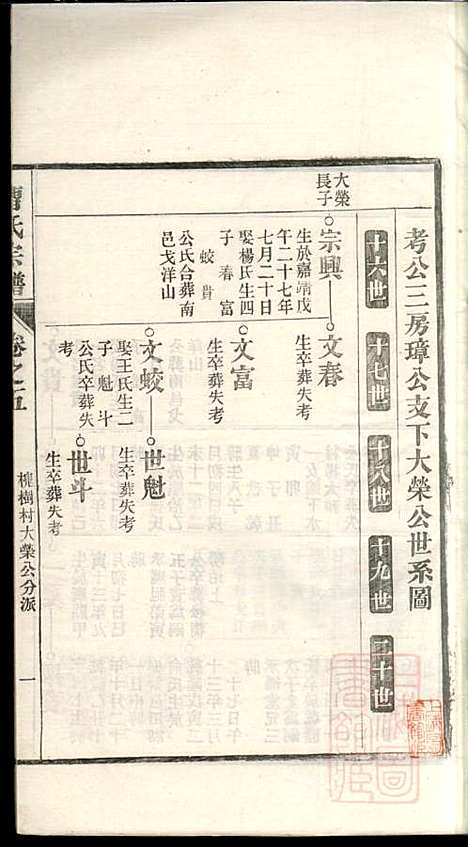 考公三房璋公支下大榮公世系圖
十六世
十七世
十八世
十九世
二十世
大榮
長子
宗興
生於嘉靖戊
年二十七年
七月二十日
娶楊氏生四
子 春 富
蛟 貴
公氏合葬南
邑戈洋山
文春
生卒葬失考
文富
生卒葬失考
文蛟
娶王氏生二
子 魁 斗
公氏卒葬失
考
世魁
生卒葬失考
世斗
生卒葬失考
氏宗譜
卷之五
槐樹村大榮公分派
一